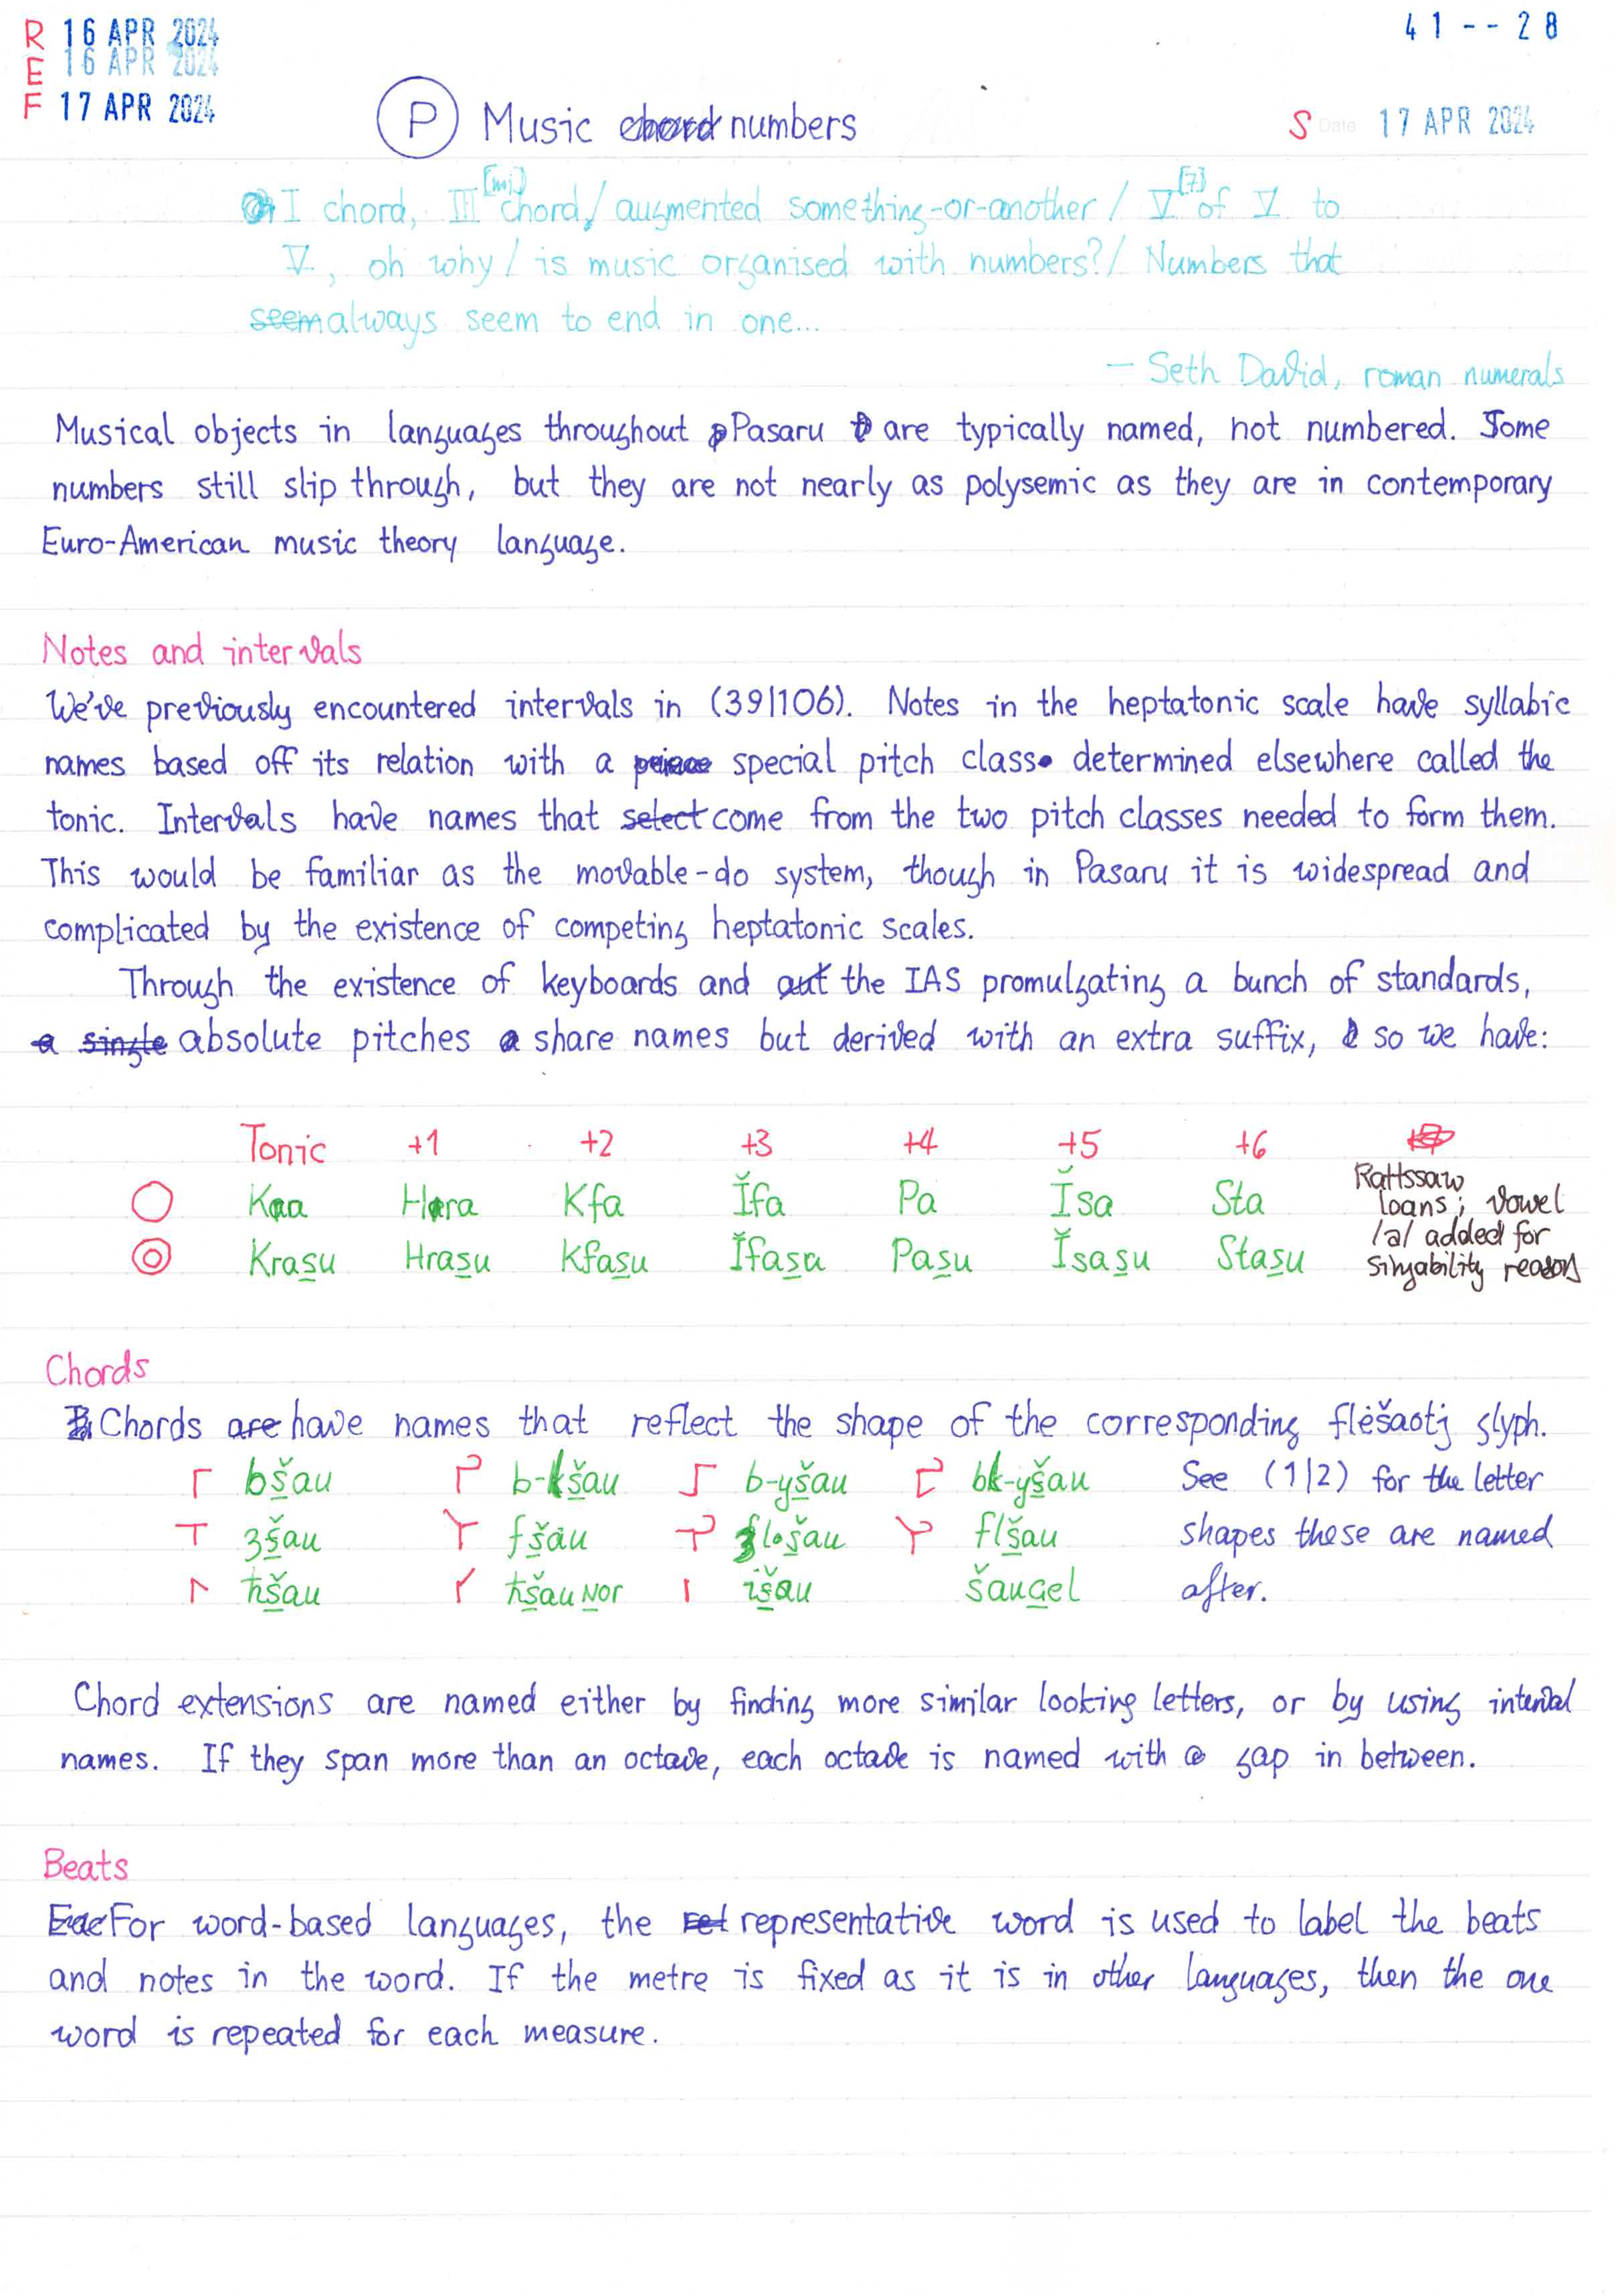 R 16 APR 2024
E 16 APR 2024
F 17 APR 2024
41--28
P Music chord numbers
S Date 17 APR 2024
I chord, III[mi] chord, / augmented something-or-another / V[7] of V to
V, oh why / is music organised with numbers? / Numbers that
seem always seem to end in one...
— Seth David, roman numerals
Musical objects in languages throughout Pasaru are typically named, not numbered. Some
numbers still slip through, but they are not nearly as polysemic as they are in contemporary
Euro-American music theory language.
Notes and intervals
We've previously encountered intervals in (39|106). Notes in the heptatonic scale have syllabic
names based off its relation with a special pitch class determined elsewhere called the
tonic. Intervals have names that select come from the two pitch classes needed to form them.
This would be familiar as the movable-do system, though in Pasaru it is widespread and
complicated by the existence of competing heptatonic scales.
Through the existence of keyboards and the IAS promulgating a bunch of standards,
a single absolute pitches share names but derived with an extra suffix, so we have:
Tonic +1 +2 +3 +4 +5 +6
Hara Kfa Ǐfa Pa Ǐsa Sta
Kras̲u Hras̲u Kfas̲u Ǐfas̲u Pas̲u Ǐsas̲u Stas̲u
Rattssaw
loans; vowel
/a/ added for
singability reasons
Chords
Chords are have names that reflect the shape of the corresponding flėšaotj glyph.
bš̲au b-kš̲au b-yš̲au bk-yš̲au See (1|2) for the letter
3š̲au fš̲au flš̲au shapes these are named
ħš̲au ħš̲auN̲or iš̲au šaug̲el after.
Chord extensions are named either by finding more similar looking letters, or by using interval
names. If they span more than an octave, each octave is named with a gap in between.
Beats
For word-based languages, the representative word is used to label the beats
and notes in the word. If the metre is fixed as it is in other languages, then the one
word is repeated for each measure.